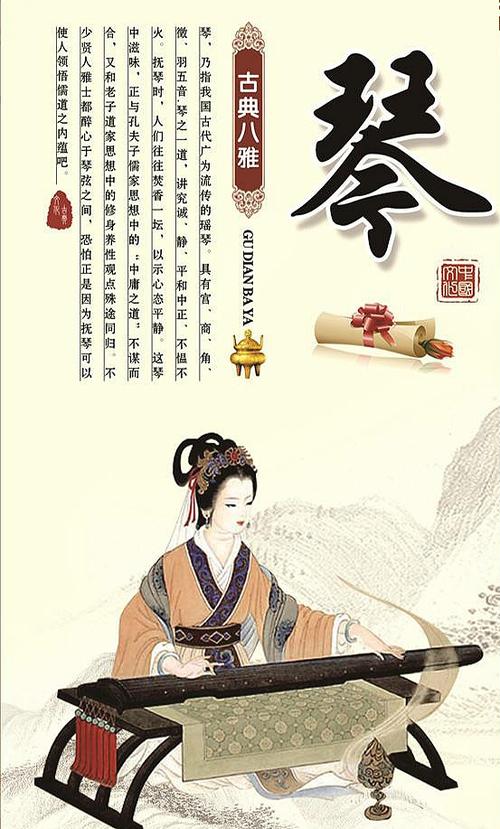 琴
中國
文化
古典八雅
GU DIAN BA YA
琴，乃指我国古代广为流传的瑶琴。具有宫、商、角、
徵、羽五音，琴之一道，讲究诚、静、平和中正、不愠不
火。抚琴时，人们往往焚香一坛，以示心态平静。这琴
中滋味，正与孔夫子儒家思想中的“中庸之道”不谋而
合，又和老子道家思想中的修身养性观点殊途同归。不
少贤人雅士都醉心于琴弦之间，恐怕正是因为抚琴可以
使人领悟儒道之内蕴吧。
古典
文化